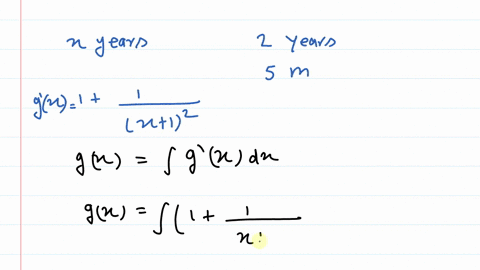 x years 2 years
5 m
g'(x) = 1 + 1/(x+1)²
g(x) = ∫ g'(x) dx
g(x) = ∫(1 + 1/x